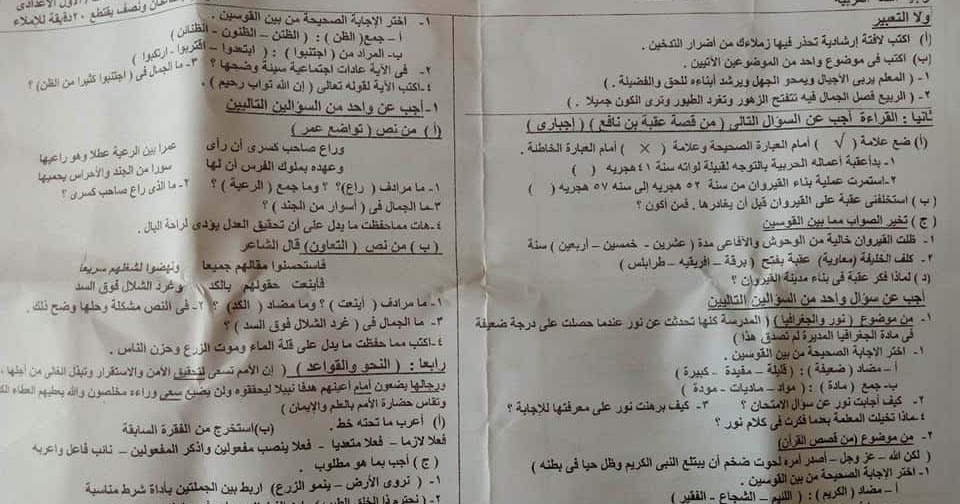 ولا التعبير
(أ) اكتب لافتة إرشادية تحذر فيها زملاءك من أضرار التدخين .
(ب) اكتب فى موضوع واحد من الموضوعين الآتيين .
١- ( المعلم يربى الأجيال ويمحو الجهل ويرشد أبناءه للحق والفضيلة . )
٢- ( الربيع فصل الجمال فيه تتفتح الزهور وتغرد الطيور وترى الكون جميلا . )
ثانيا : القراءة أجب عن السؤال التالى ( من قصة عقبة بن نافع ) ( إجبارى )
(أ) ضع علامة ( √ ) أمام العبارة الصحيحة وعلامة ( × ) أمام العبارة الخاطئة .
١- بدأ عقبة أعماله الحربية بالتوجه لقبيلة لواته سنة ٤١ هجريه ( )
٢- استمرت عملية بناء القيروان من سنة ٥٣ هجريه إلى سنه ٥٧ هجريه ( )
( ب ) استخلفنى عقبة على القيروان قبل أن يغادرها . فمن أكون ؟
( ج ) تخير الصواب مما بين القوسين
١- ظلت القيروان خالية من الوحوش والأفاعى مدة ( عشرين - خمسين - أربعين ) سنة
٢- كلف الخليفة (معاوية) عقبة بفتح ( برقة - افريقيه - طرابلس )
(د) لماذا فكر عقبة فى بناء مدينة القيروان ؟
أجب عن سؤال واحد من السؤالين التاليين
١- من موضوع ( نور والجغرافيا ) ( المدرسة كلها تحدثت عن نور عندما حصلت على درجة ضعيفة
فى مادة الجغرافيا المديرة لم تصدق هذا )
١- اختر الإجابة الصحيحة من بين القوسين .
أ - مضاد ( ضعيفة ) : ( قليلة - مفيدة - كبيرة )
ب- جمع ( مادة ) : ( مواد - ماديات - مودة )
٢- كيف أجابت نور عن سؤال الامتحان ؟ ٣- كيف برهنت نور على معرفتها للإجابة ؟
٤- ماذا تخيلت المعلمة بعدما فكرت فى كلام نور ؟
٢- من موضوع (من قصص القرآن)
( لكن الله - عز وجل - أصدر أمره لحوت ضخم أن يبتلع النبى الكريم وظل حيا فى بطنه )
١- اختر الإجابة الصحيحة من بين القوسين .
أ - مضاد ( الكريم ) : ( اللئيم - الشجاع - الفقير )
١- اختر الإجابة الصحيحة من بين القوسين .
أ - جمع( الظن ) : ( الظنن - الظنون - الظنائن )
ب- المراد من ( اجتنبوا ) : ( ابتعدوا - اقتربوا - ارتكبوا )
٢- فى الآية عادات اجتماعية سيئة وضحها ؟ ٣- ما الجمال فى ( اجتنبوا كثيرا من الظن) ؟
٤- اكتب الآية لقوله تعالى ( إن الله تواب رحيم ) .
١- أجب عن واحد من السؤالين التاليين
( أ ) من نص ( تواضع عمر )
وراع صاحب كسرى أن رأى عمرا بين الرعية عطلا وهو راعيها
وعهده بملوك الفرس أن لها سورا من الجند والأحراس يحميها
١- ما مرادف ( راع)؟ ؟ وما جمع ( الرعية ) ؟ ٢- ما الذى راع صاحب كسرى ؟
٣- ما الجمال فى ( أسوار من الجند ) ؟
٤- هات مما حفظت ما يدل على أن تحقيق العدل يؤدى لراحة البال .
( ب ) من نص (التعاون) قال الشاعر
فاستحسنوا مقالهم جميعا ونهضوا لشغلهم سريعا
فأينعت حقولهم بالكد وغرد الشلال فوق السد
١- ما مرادف ( أينعت ) ؟ وما مضاد ( الكد) ؟ ٢- فى النص مشكلة وحلها وضح ذلك .
٣- ما الجمال فى ( غرد الشلال فوق السد ) ؟
٤- اكتب مما حفظت ما يدل على قلة الماء وموت الزرع وحزن الناس .
رابعا : ( النحو والقواعد ) ( إن الأمم تسعى لتحقيق الأمن والاستقرار وتبذل الغالى من أجلها ،
ورجالها يضعون أمام أعينهم هدفا نبيلا ليحققوه ولن يضيع سعى وراءه مخلصون والله يعطيهم العطاء
وتقاس حضارة الأمم بالعلم والإيمان )
(أ) أعرب ما تحته خط . (ب) استخرج من الفقرة السابقة
فعلا لازما - فعلا متعديا - فعلا ينصب مفعولين واذكر المفعولين - نائب فاعل واعربه
( ج ) أجب بما هو مطلوب .
١- ( تروى الأرض - ينمو الزرع ) اربط بين الجملتين بأداة شرط مناسبة